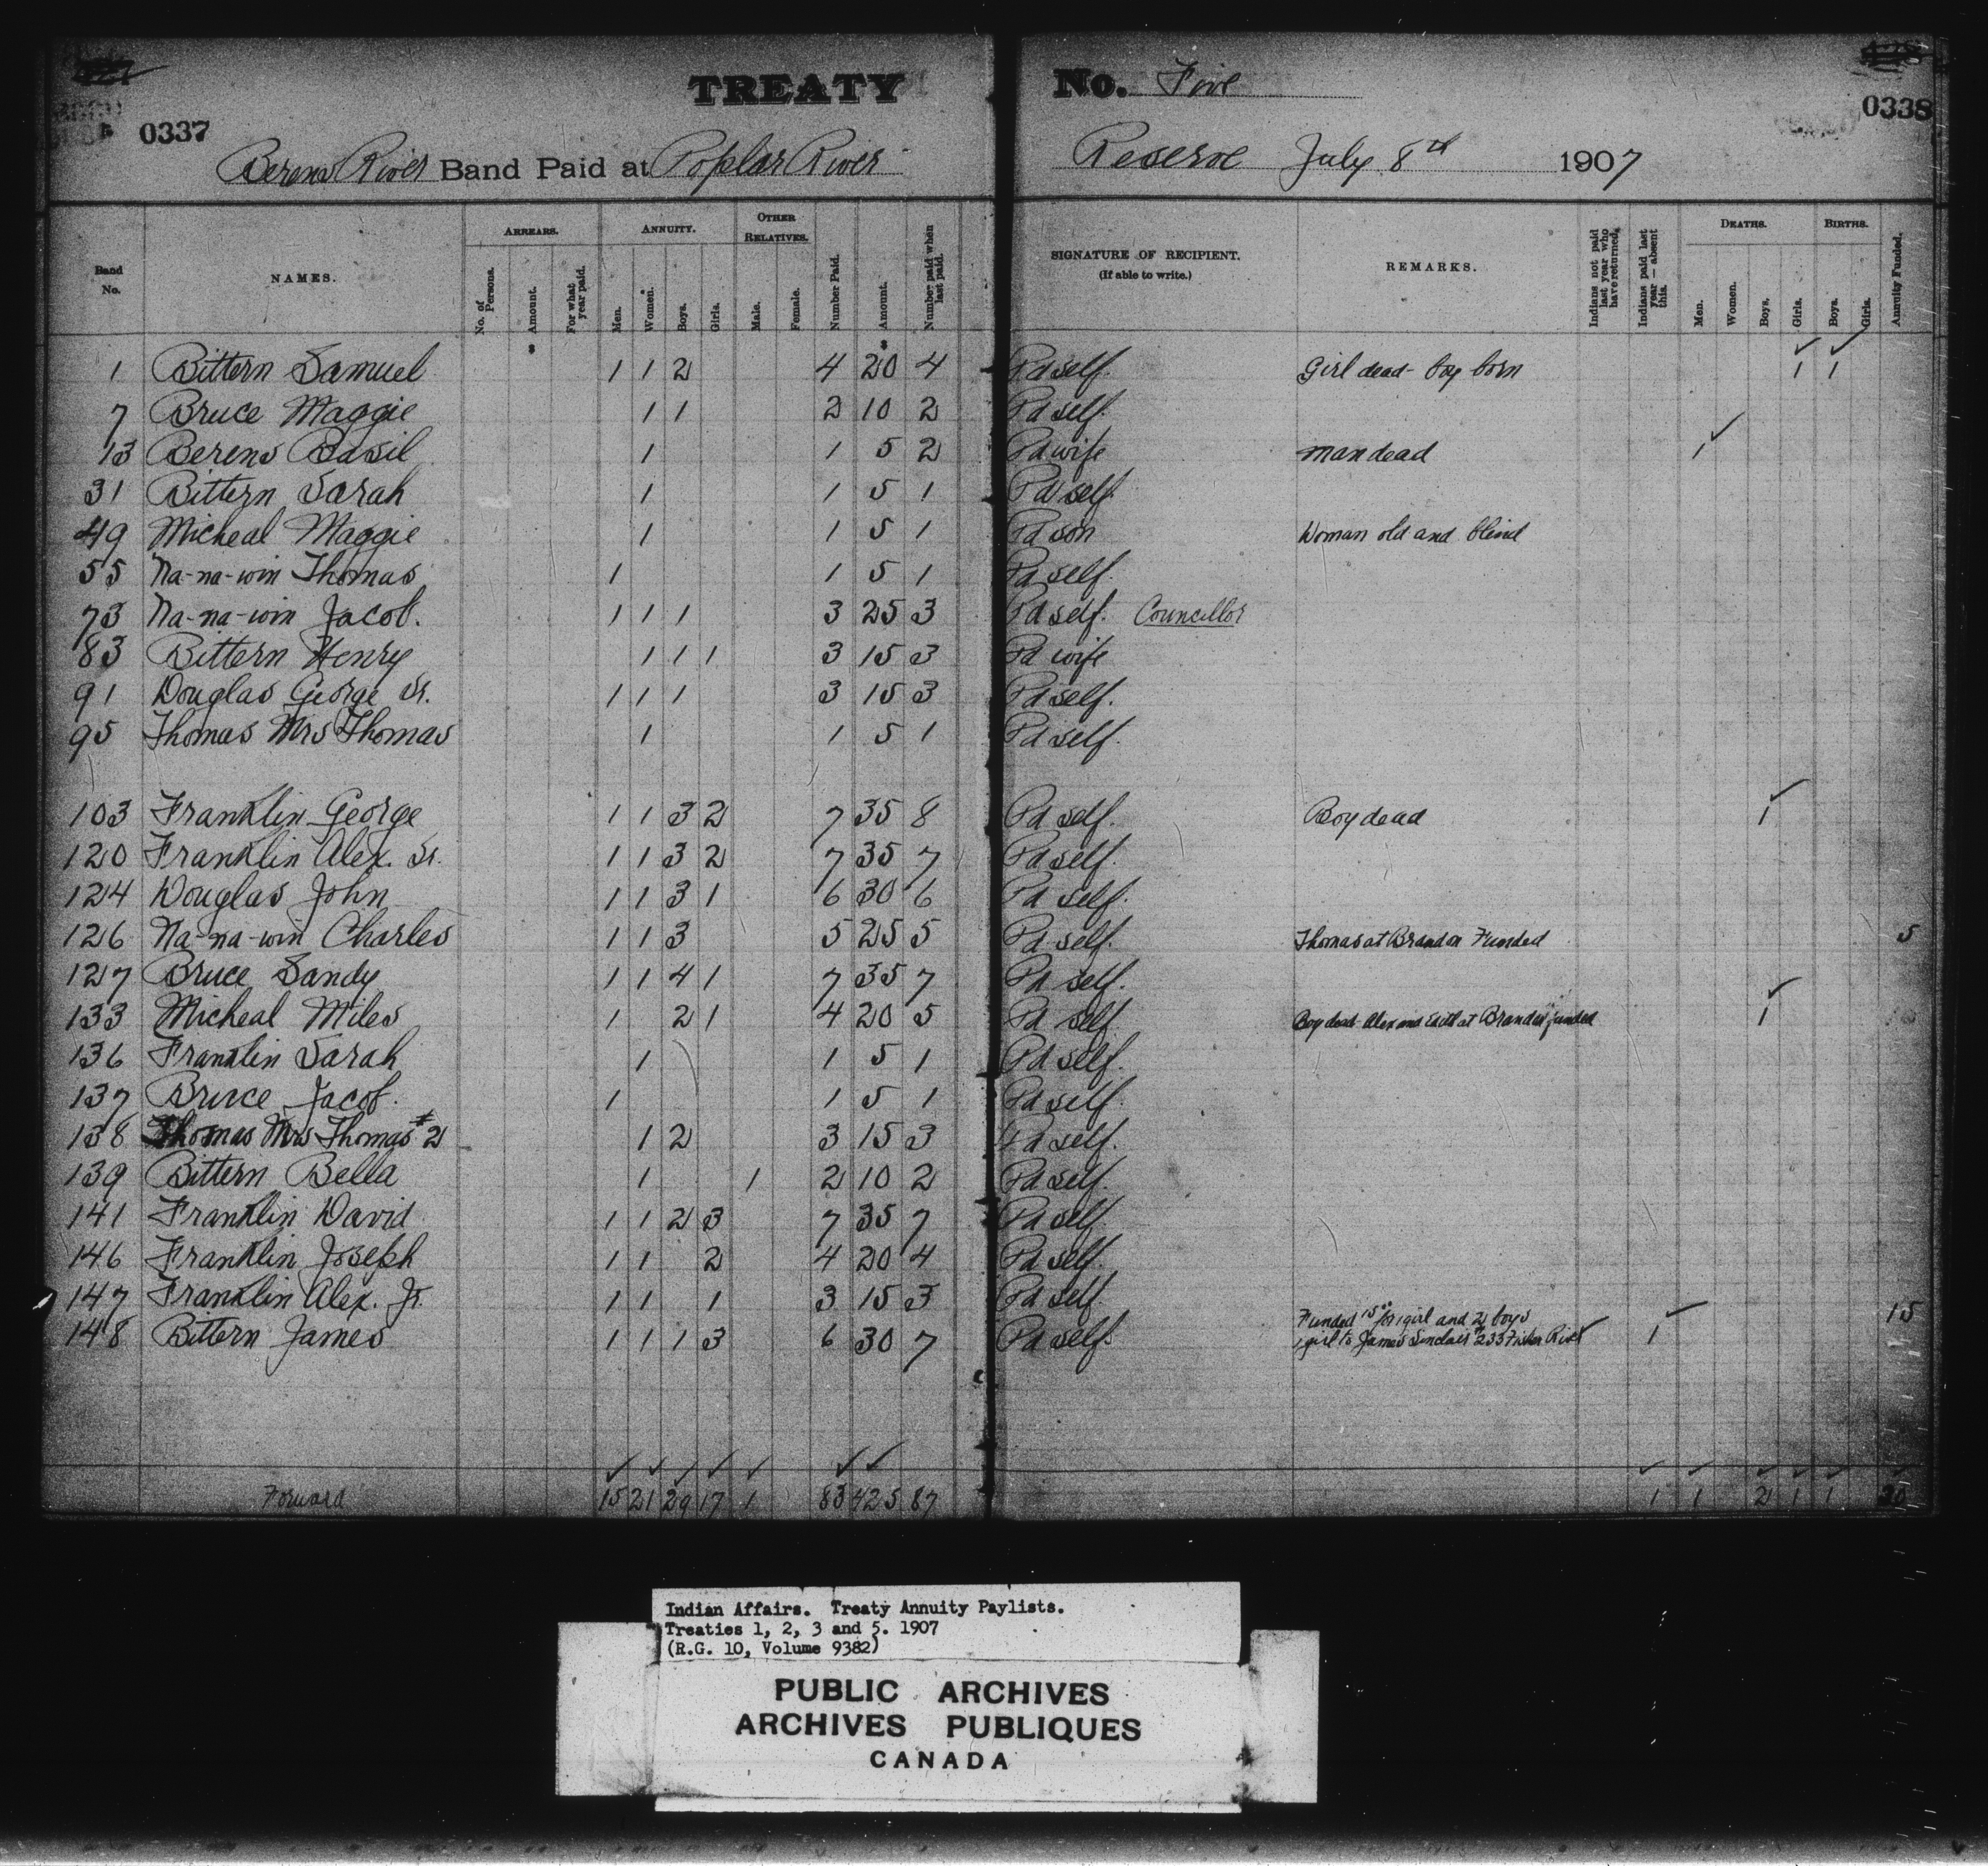 TREATY No. Five
0337 0338
Berens River Band Paid at Poplar River Reserve July 8th 1907
Band No. NAMES. ARREARS. No. of Persons. Amount. For what year paid. ANNUITY. Men. Women. Boys. Girls. OTHER RELATIVES. Male. Female. Number Paid. Amount. Number paid when last paid. SIGNATURE OF RECIPIENT. (If able to write.) REMARKS. Indians not paid last year who have returned. Indians paid last year — absent this. DEATHS. Men. Women. Boys. Girls. BIRTHS. Boys. Girls. Annuity Funded.
$ $
1 Bittern Samuel 1 1 2 4 20 4 Pd self. Girl dead - boy born 1 1
7 Bruce Maggie 1 1 2 10 2 Pd self.
13 Berens Basil 1 1 5 2 Pd wife man dead 1
31 Bittern Sarah 1 1 5 1 Pd self.
49 Micheal Maggie 1 1 5 1 Pd son Woman old and blind
55 Na-na-win Thomas 1 1 5 1 Pd self.
73 Na-na-win Jacob. 1 1 1 3 25 3 Pd self. Councillor
83 Bittern Henry 1 1 1 3 15 3 Pd wife
91 Douglas George Sr. 1 1 1 3 15 3 Pd self.
95 Thomas Mrs Thomas 1 1 5 1 Pd self.
103 Franklin George 1 1 3 2 7 35 8 Pd self. Boy dead 1
120 Franklin Alex. Sr. 1 1 3 2 7 35 7 Pd self.
124 Douglas John 1 1 3 1 6 30 6 Pd self.
126 Na-na-win Charles 1 1 3 5 25 5 Pd self. Thomas at Brandon Funded 5
127 Bruce Sandy 1 1 4 1 7 35 7 Pd self.
133 Micheal Miles 1 2 1 4 20 5 Pd self Boy dead Alex and Edith at Brandon funded 1
136 Franklin Sarah 1 1 5 1 Pd self.
137 Bruce Jacob. 1 1 5 1 Pd self.
138 Thomas Mrs Thomas #2 1 2 3 15 3 Pd self.
139 Bittern Bella 1 1 2 10 2 Pd self.
141 Franklin David 1 1 2 3 7 35 7 Pd self.
146 Franklin Joseph 1 1 2 4 20 4 Pd self.
147 Franklin Alex. Jr. 1 1 1 3 15 3 Pd self.
Funded 15 00 for 1 girl and 2 boys 15
148 Bittern James 1 1 1 3 6 30 7 Pd self. 1 girl to James Sinclair #233 Fisher River 1
Forward 15 21 29 17 1 83 425 87 1 1 2 1 1
Indian Affairs. Treaty Annuity Paylists.
Treaties 1, 2, 3 and 5. 1907
(R.G. 10, Volume 9382)
PUBLIC ARCHIVES
ARCHIVES PUBLIQUES
CANADA